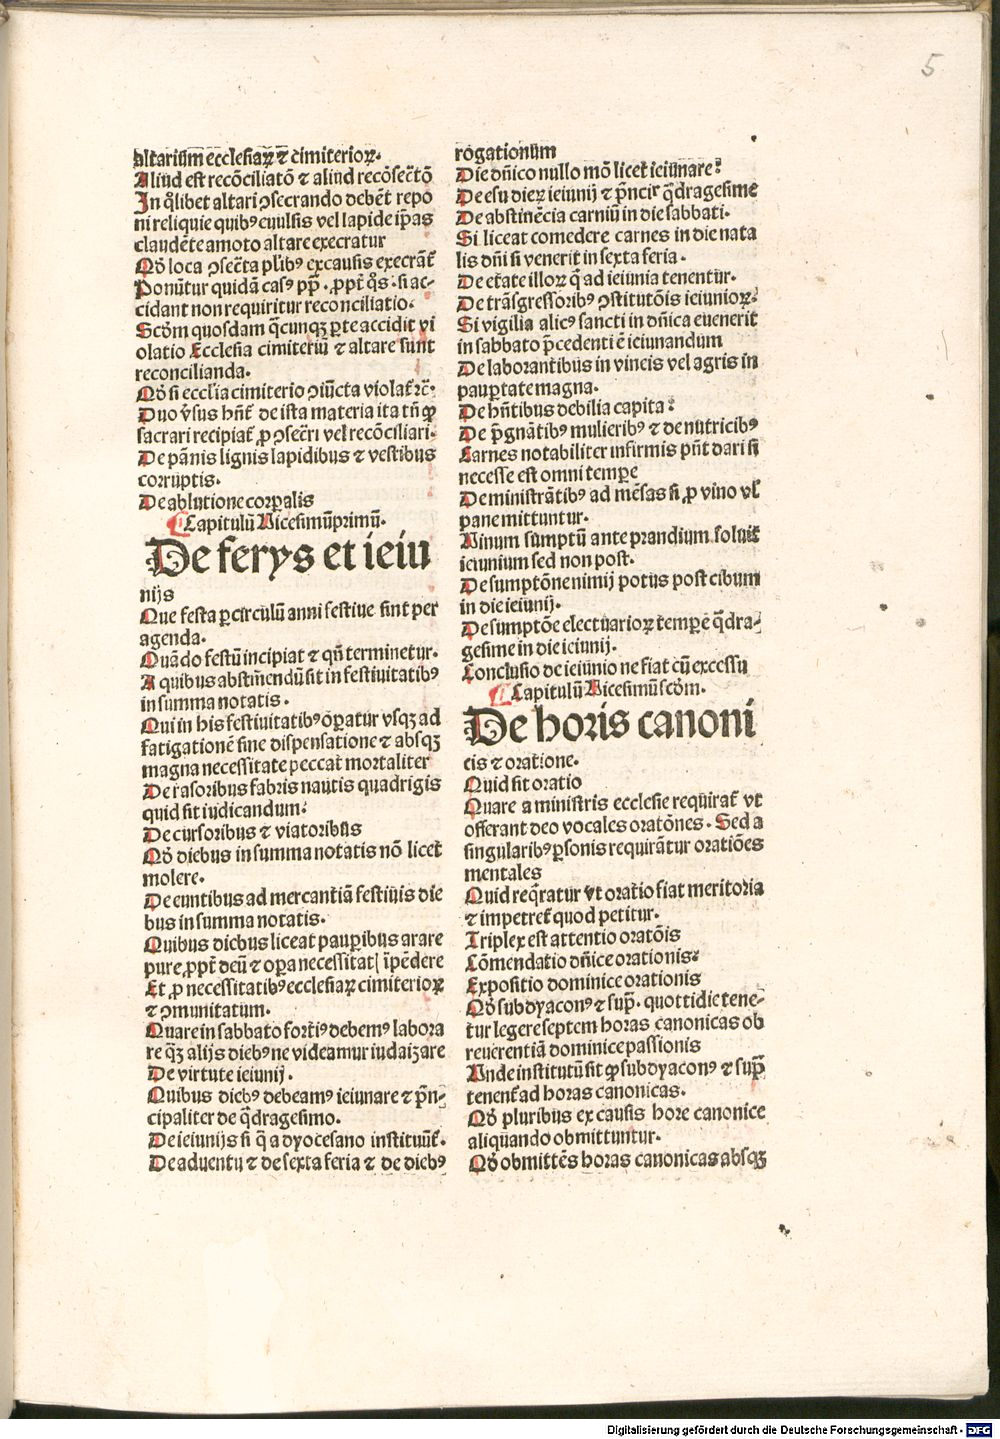 5
altariũm ecclesiaꝝ ⁊ cimiterioꝝ.
Aliud est recõciliatõ ⁊ aliud recõsectõ
In q̃libet altari ꝯsecrando debẽt repo
ni reliquie quibꝰ euulsis vel lapide ip̃as
claudẽte amoto altare execratur
Qđ loca ꝯsecta pl̃ibꝰ ex causis execrãt̃
Ponũtur quidã casꝰ pp̃. ꝓpt̃ q̃s. si ac-
cidant non requiritur reconciliatio.
Scđm quosdam q̃cunqꝫ ꝑte accidit vi
olatio Ecclesia cimiteriũ ⁊ altare sunt
reconcilianda.
Qđ si eccl̃ia cimiterio ꝯiũcta violat̃ ⁊c̃.
Duo v̓sus hñt̃ de ista materia ita tñ ꝙ
sacrari recipiat̃ ꝓ ꝯsecr̃i vel recõciliari.
De pãnis lignis lapidibus ⁊ vestibus
corruptis.
De ablutione corꝑalis
Capitulũ Vicesimũprimũ.
De ferys et ieiu
nijs
Que festa ꝑ circulũ anni festiue sint per
agenda.
Quãdo festũ incipiat ⁊ qñ terminetur.
A quibus abstinendũ sit in festiuitatibꝰ
in summa notatis.
Qui in his festiuitatibꝰ oꝑatur vsqꝫ ad
fatigationẽ sine dispensatione ⁊ absqꝫ
magna necessitate peccat mortaliter
De rasoribus fabris nautis quadrigis
quid sit iudicandum.
De cursoribus ⁊ viatoribus
Qđ diebus in summa notatis nõ licet
molere.
De euntibus ad mercantiã festiuis die
bus in summa notatis.
Quibus diebus liceat pauꝑibus arare
pure ꝓpt̃ deũ ⁊ oꝑa necessitat[ ip̃edere
Et ꝓ necessitatibꝰ ecclesiaꝝ cimiterioꝝ
⁊ ꝯmunitatum.
Quare in sabbato fortiꝰ debemꝰ labora
re q̃ꝫ alijs diebꝰ ne videamur iudaizare
De virtute ieiunij.
Quibus diebꝰ debeamꝰ ieiunare ⁊ p̃n-
cipaliter de q̃dragesimo.
De ieiunijs si q̃ a dyocesano instituũt̃.
De aduentu ⁊ de sexta feria ⁊ de diebꝰ
rogationum
Die dñico nullo mõ licet ieiunare.
De esu dieꝝ ieiunij ⁊ p̃ncĩr q̃dragesime
De abstinẽcia carniũ in die sabbati.
Si liceat comedere carnes in die nata
lis dñi si venerit in sexta feria.
De etate illoꝝ q̃ ad ieiunia tenentur.
De trãsgressoribꝰ ꝯstitutõis ieiunioꝝ.
Si vigilia alicꝰ sancti in dñica euenerit
in sabbato p̃cedenti ẽ ieiunandum
De laborantibus in vineis vel agris in
pauꝑtate magna.
De hñtibus debilia capita.
De p̃gnãtibꝰ mulieribꝰ ⁊ de nutricibꝰ
Carnes notabiliter infirmis pñt dari si
necesse est omni temꝑe
De ministrãtibꝰ ad mẽsas si ꝓ vino vl̃
pane mittuntur.
Vinum sumptũ ante prandium soluit
ieiunium sed non post.
De sumptõne nimij potus post cibum
in die ieiunij.
De sumptõe electuarioꝝ temꝑe q̃dra-
gesime in die ieiunij.
Conclusio de ieiunio ne fiat cũ excessu
Capitulũ Vicesimũ scđm.
De horis canoni
cis ⁊ oratione.
Quid sit oratio
Quare a ministris ecclesie requirat̃ vt
offerant deo vocales oratõnes. Sed a
singularibꝰ ꝑsonis requirãtur oratiões
mentales
Quid req̃ratur vt oratio fiat meritoria
⁊ impetret quod petitur.
Triplex est attentio oratõis
Cõmendatio dñice orationis.
Expositio dominice orationis
Qđ subdyaconꝰ ⁊ sup̃. quottidie tene-
tur legere septem horas canonicas ob
reuerentiã dominice passionis
Vnde institutũ sit ꝙ subdyaconꝰ ⁊ sup̃
tenent̃ ad horas canonicas.
Qđ pluribus ex causis hore canonice
aliquando obmittuntur.
Qđ obmittẽs horas canonicas absqꝫ
Digitalisierung gefördert durch die Deutsche Forschungsgemeinschaft - DFG